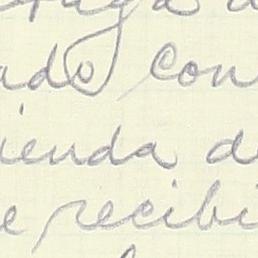 ado con
ienda d
e recibi